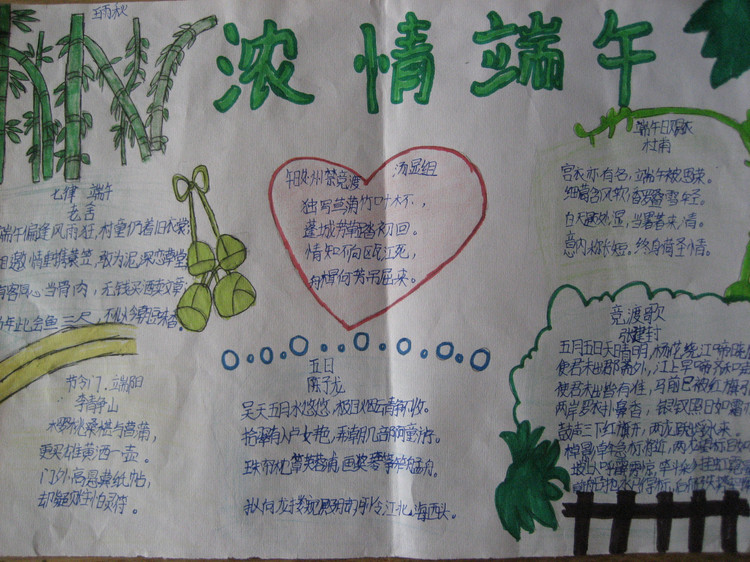 浓情端午
七律 端午
老舍
端午偏逢风雨狂,村童仍着旧衣裳;
邀情重携蓑笠,敢为泥深恋草堂;
有客同心当骨肉,无钱买酒卖文章;
年此会鱼三尺,不似今朝豆味香。
午日处州禁竞渡 汤显组
独写菖蒲竹叶杯,
蓬城芳草踏初回。
情知不向瓯江死,
舟楫何芳吊屈来。
端午日赐衣
杜甫
宫衣亦有名,端午被恩荣。
细葛含风软,香罗叠雪轻。
自天题处湿,当暑著来清。
意内称长短。终身荷圣情。
节令门·端阳
李静山
樱桃桑椹与菖蒲,
更买雄黄酒一壶。
门外高悬黄纸帖,
却疑账主怕灵符。
五日
陈子龙
吴天五月水悠悠,极目烟云静不收。
拾翠有人卢女艳,弄潮几部阿童游。
珠帘枕簟芙蓉浦,画桨琴筝舴艋舟。
拟向龙楼窥殿脚,可怜江北海西头。
竞渡歌
张建封
五月五日天晴明,杨花绕江啼晓
使君未出郡斋外,江上早闻齐和
使君出时皆有准,马前已被红旗
两岸罗衣扑鼻香,银钗照日如霜
鼓声三下红旗开,两龙跃出浮水来。